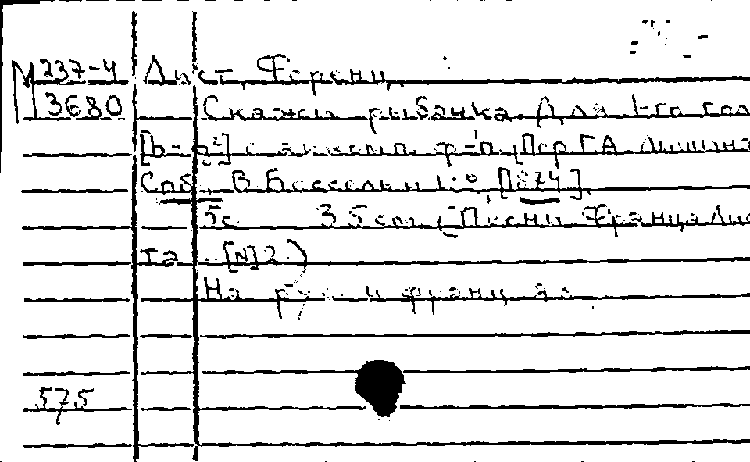 М 237-4 Лист, Ференц
3680 Скажи рыбачка. Для 1-го гол
[b-g²] с аккомп. ф-п. [Пер Г.А. Лишина
Спб., В. Бессель и К°, [1874].
5с 35 см (Песни Франца Лис
та. [N] 2)
На рус. и франц яз.
575